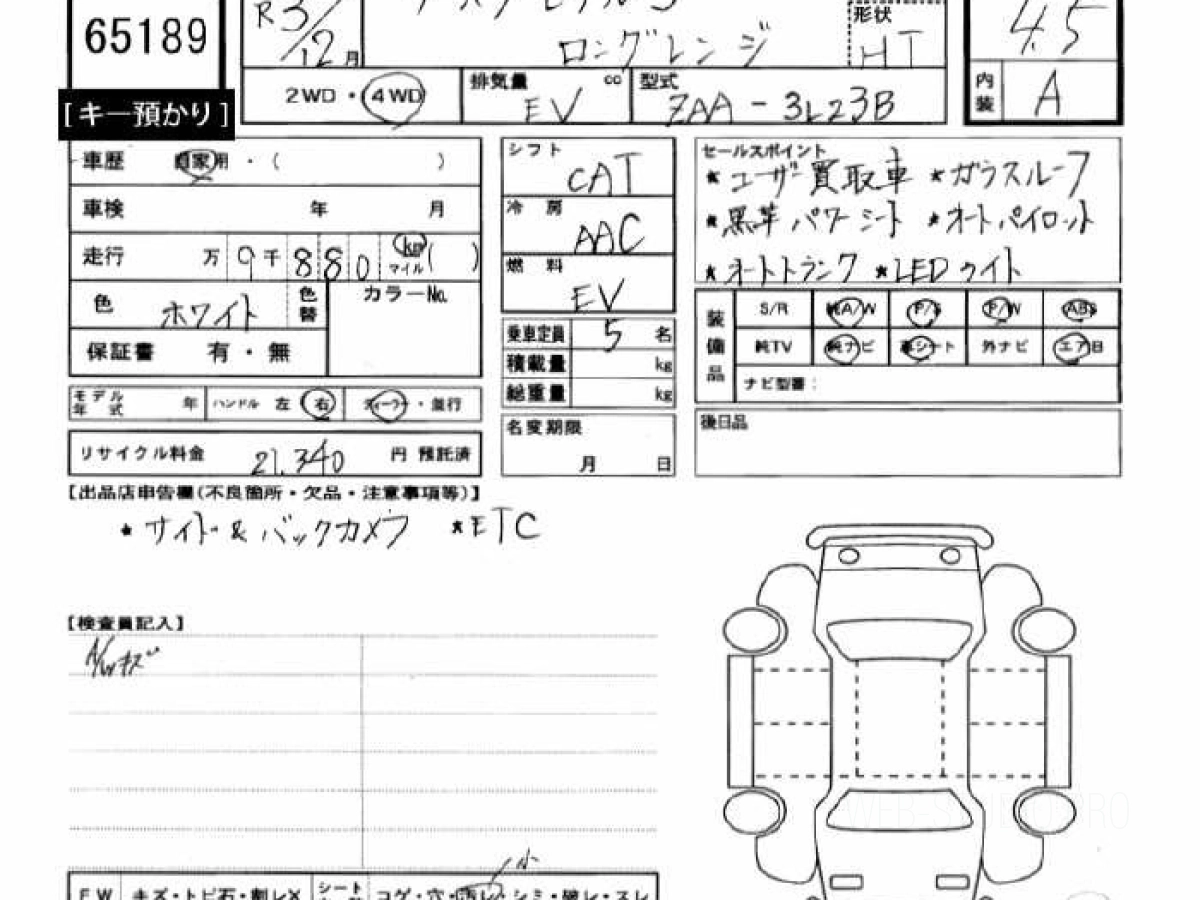 65189
R3/12月
テスラ モデル3
ロングレンジ
形状
HT
4.5
[キー預かり]
2WD・4WD
排気量 cc
EV
型式
ZAA-3L23B
内装
A
車歴 自家用・( )
車検 年 月
走行 万 9千880 km マイル( )
色 ホワイト 色替
カラーNo.
保証書 有・無
モデル年式 年 ハンドル 左 右 ディーラー・並行
リサイクル料金 21,340 円 預託済
シフト
CAT
冷房
AAC
燃料
EV
乗車定員 5 名
積載量 kg
総重量 kg
名変期限
月 日
セールスポイント
★ユーザー買取車 ★ガラスルーフ
★黒革パワーシート ★オートパイロット
★オートトランク ★LEDライト
装備品
S/R 純A/W P/S P/W ABS
純TV 純ナビ 革シート 外ナビ エアB
ナビ型番:
後日品
【出品店申告欄(不良箇所・欠品・注意事項等)】
★サイド&バックカメラ ★ETC
【検査員記入】
A/Wキズ
小
FW キズ・トビ石・割レX シート コゲ・穴・汚レ・シミ・破レ・スレ